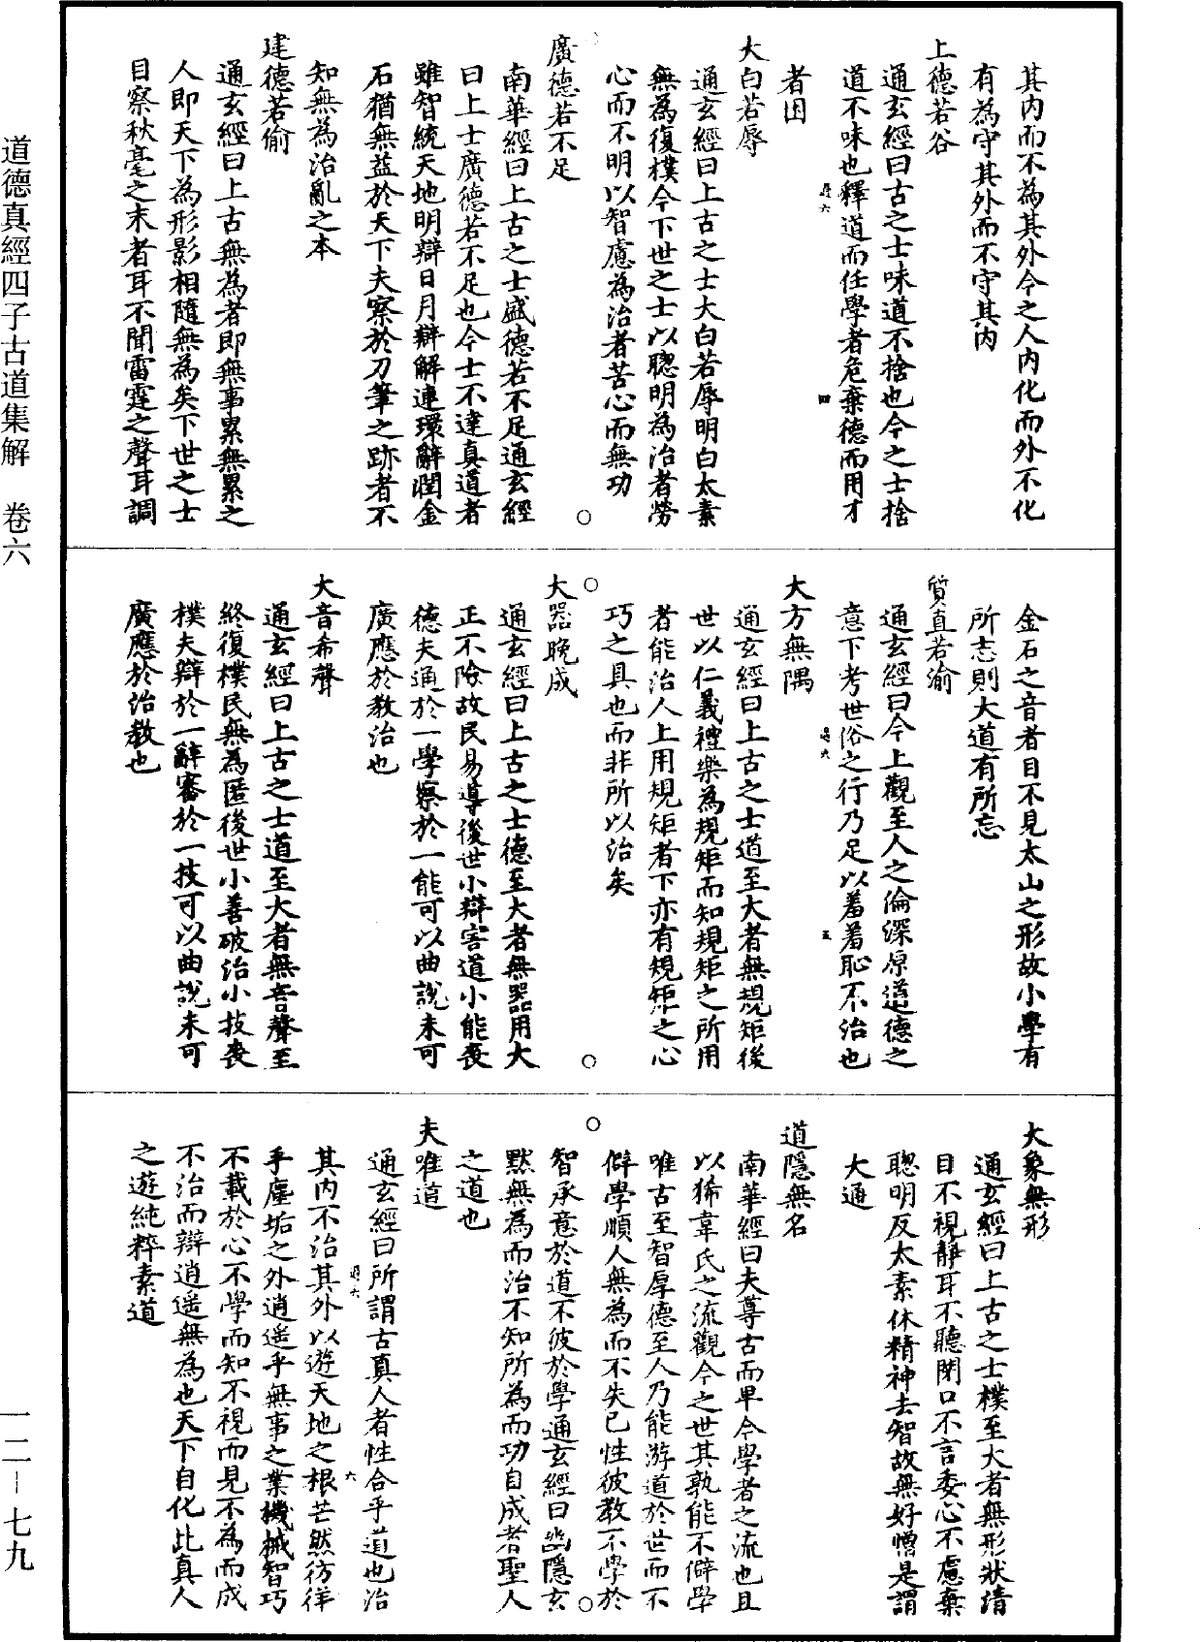 道德真經四子古道集解　卷六
其內而不為其外今之人內化而外不化
有為守其外而不守其內
上德若谷
通玄經曰古之士味道不捨也今之士捨
道不味也釋道而任學者危棄德而用才
者困
大白若辱
通玄經曰上古之士大白若辱明白太素
無為復樸今下世之士以聰明為治者勞
心而不明以智慮為治者苦心而無功
廣德若不足
南華經曰上古之士盛德若不足通玄經
曰上士廣德若不足也今士不達真道者
雖智統天地明辯日月辯解連環辭潤金
石猶無益於天下夫察於刀筆之跡者不
知無為治亂之本
建德若偷
通玄經曰上古無為者即無事累無累之
人即天下為形影相隨無為矣下世之士
目察秋毫之末者耳不聞雷霆之聲耳調
金石之音者目不見太山之形故小學有
所志則大道有所忘
質直若渝
通玄經曰今上觀至人之倫深原道德之
意下考世俗之行乃足以羞羞恥不治也
大方無隅
通玄經曰上古之士道至大者無規矩後
世以仁義禮樂為規矩而知規矩之所用
者能治人上用規矩者下亦有規矩之心
巧之具也而非所以治矣
大器晚成
通玄經曰上古之士德至大者無器用大
正不險故民易導後世小辯害道小能喪
德夫通於一學察於一能可以曲說未可
廣應於教治也
大音希聲
通玄經曰上古之士道至大者無音聲至
終復樸民無為匿後世小善破治小技喪
樸夫辯於一辭審於一技可以曲說未可
廣應於治教也
大象無形
通玄經曰上古之士樸至大者無形狀清
目不視靜耳不聽閉口不言委心不慮棄
聰明反太素休精神去智故無好憎是謂
大通
道隱無名
南華經曰夫尊古而卑今學者之流也且
以狶韋氏之流觀今之世其孰能不僻學
唯古至智厚德至人乃能游道於世而不
僻學順人無為而不失己性彼教不學於
智承意於道不彼於學通玄經曰幽隱玄
默無為而治不知所為而功自成者聖人
之道也
夫唯道
通玄經曰所謂古真人者性合乎道也治
其內不治其外以遊天地之根芒然彷徉
乎塵垢之外逍遙乎無事之業機械智巧
不載於心不學而知不視而見不為而成
不治而辯逍遙無為也天下自化比真人
之遊純粹素道
一二－七九